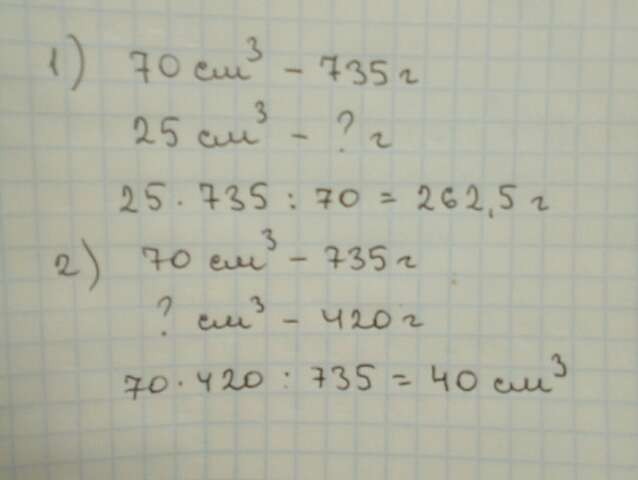 1) 70 см³ - 735 г
25 см³ - ? г
25 · 735 : 70 = 262,5 г
2) 70 см³ - 735 г
? см³ - 420 г
70 · 420 : 735 = 40 см³